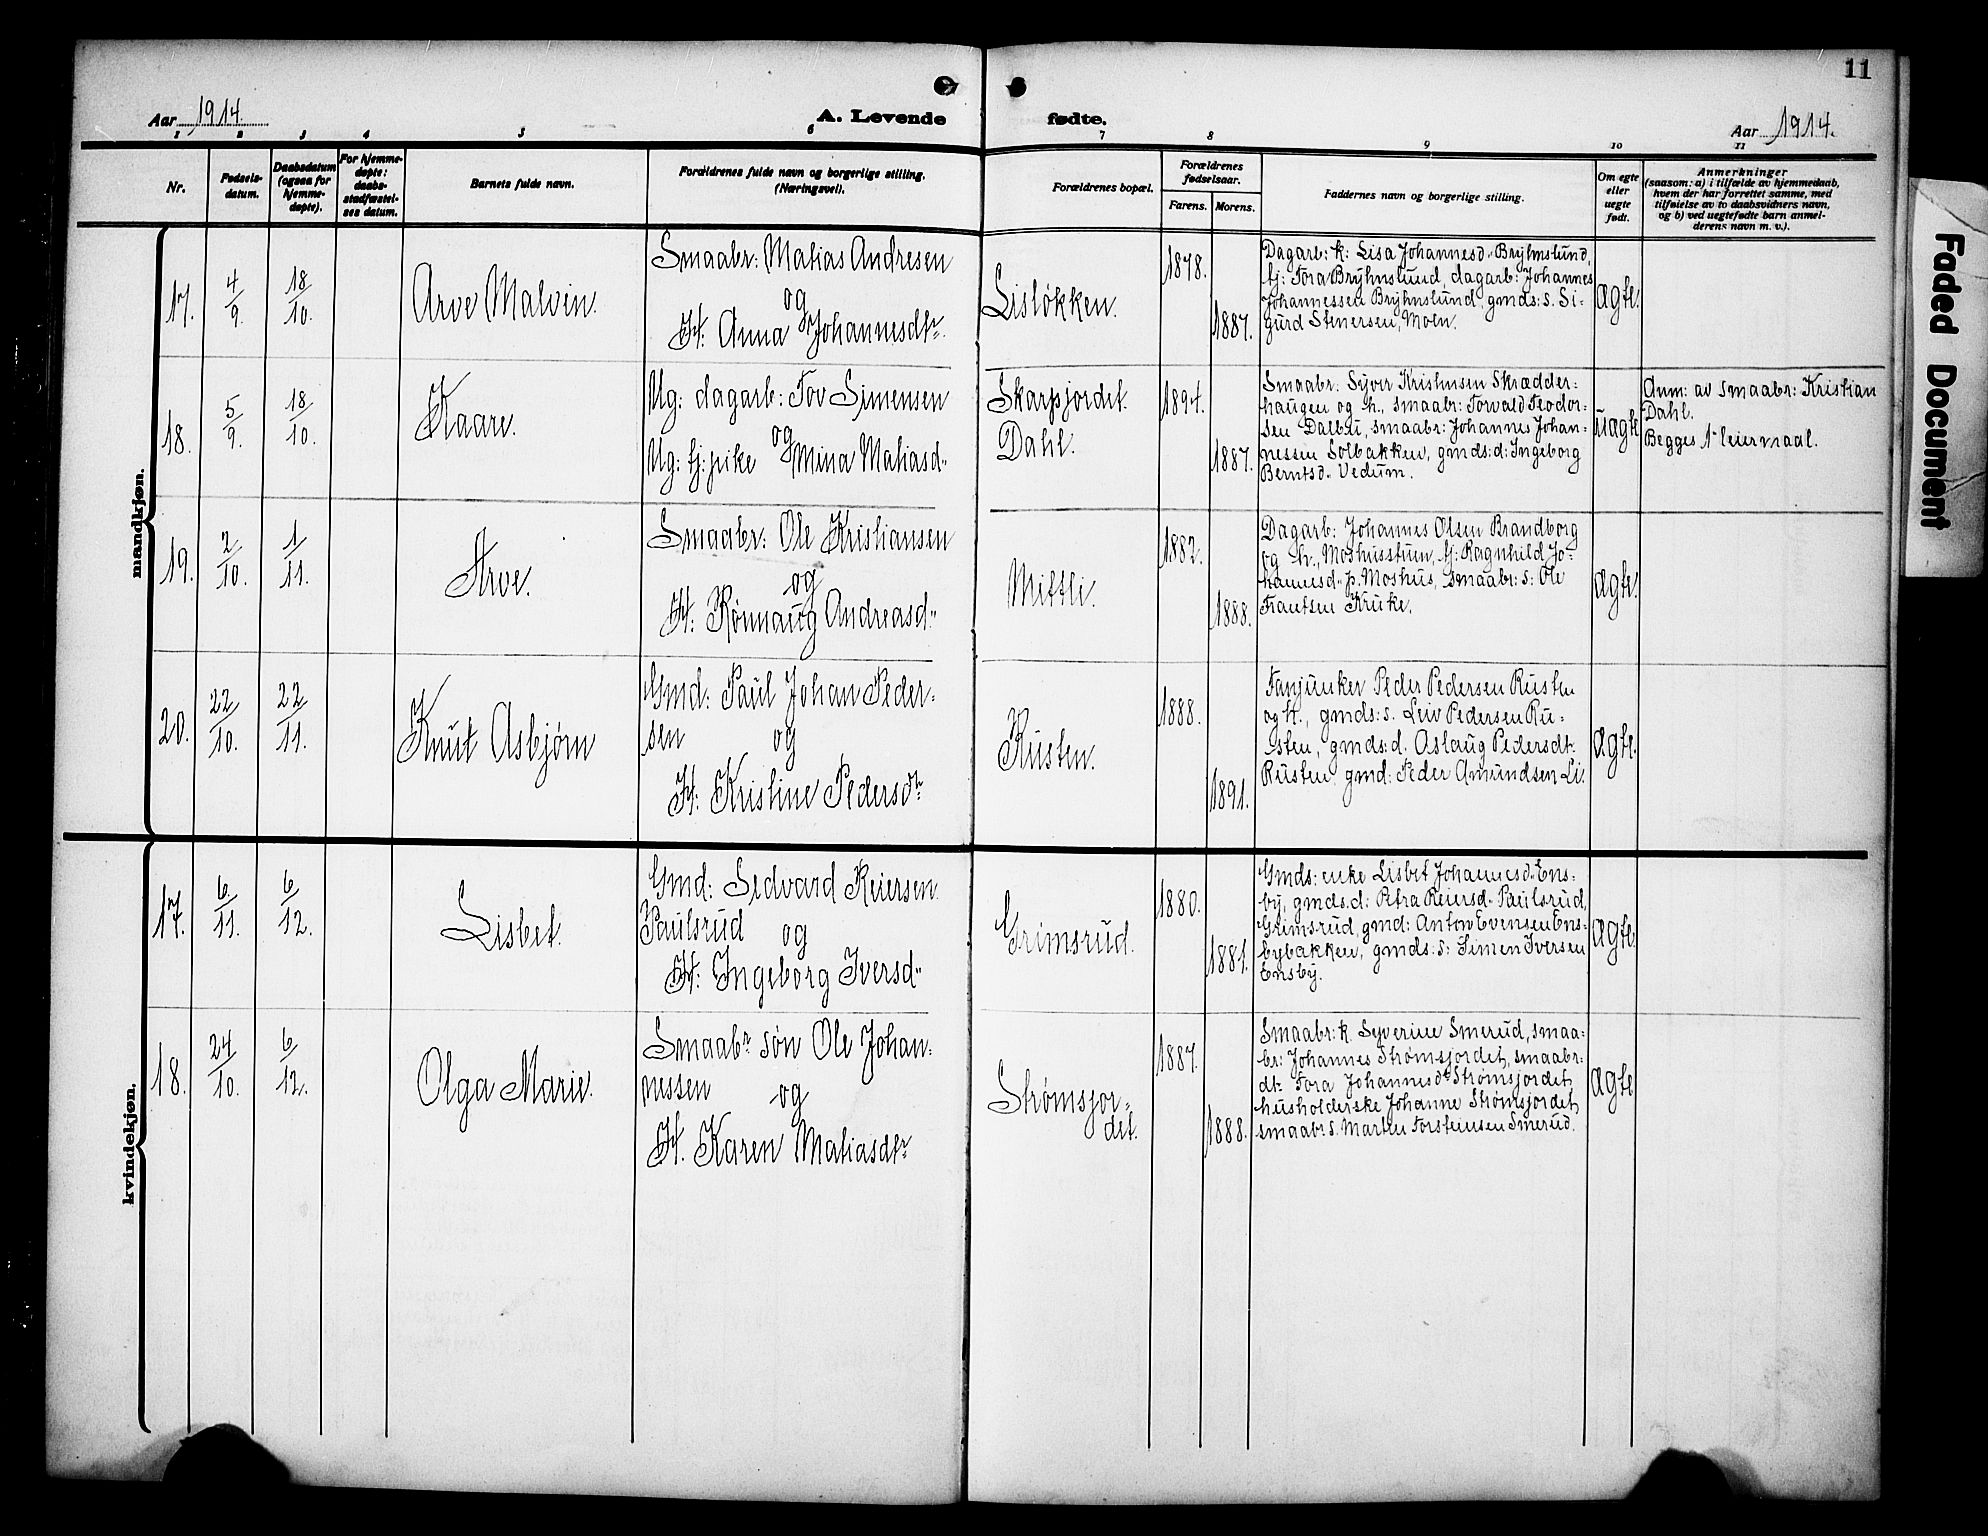 11
Aar 1914.
A. Levende
fødte.
Aar 1914.
1 2 3 4 5 6 7 8 9 10 11
Nr.
Fødsels-
datum.
Daabsdatum
(ogsaa for
hjemme-
døpte).
For hjemme-
døpte:
daabs-
stadfæstel-
ses datum.
Barnets fulde navn.
Forældrenes fulde navn og borgerlige stilling.
(Næringsvei).
Forældrenes bopæl.
Forældrenes
fødselsaar.
Farens. Morens.
Faddernes navn og borgerlige stilling.
Om egte
eller
uegte
født.
Anmerkninger
(saasom: a) i tilfælde av hjemmedaab,
hvem der har forrettet samme, med
tilføielse av to daabsvidners navn,
og b) ved uegtefødte barn anmel-
derens navn m. v.).
mandkjøn.
17.
4/9.
18/10.
Arve Malvin.
Smaabr: Matias Andresen
og
H: Anna Johannesdtr.
Lisløkken.
1878.
1887.
Dagarb: k: Lisa Johannesd. Bryhnslund,
tj: Tora Bryhnslund, dagarb: Johannes
Johannessen Bryhnslund, gmds: s. Si-
gurd Stenersen, Moen.
ægte.
18.
5/9.
18/10.
Kaare.
Ug: dagarb: Tov Simensen
og
Ug: tj: pike Mina Matiasd.
Skarpjordet.
Dahl.
1894.
1887.
Smaabr: Syver Kristiansen Skrædder-
haugen og h., smaabr: Torvald Teodor-
sen Dalbu, smaabr: Johannes Johan-
nessen Solbakken, gmds: d: Ingeborg
Berntsd. Vedum.
uægte
Anm: av smaabr: Kristian
Dahl.
Begges 1ste leiermaal.
19.
2/10.
1/11.
Arve.
Smaabr: Ole Kristiansen
og
H: Rønnaug Andreasd.
Mittli.
1882.
1888.
Dagarb: Johannes Olsen Brandborg
og h., Moshusstuen, tj: Ragnhild Jo-
hannesd. p. Moshus, smaabr: s: Ole
Frantsen Kruke.
ægte.
20.
22/10.
22/11.
Knut Asbjørn
Gmd: Paul Johan Peder-
sen og
H: Kristine Pedersdtr
Rusten.
1888.
1891.
Fanjunker Peder Pedersen Rusten
og h., gmds: s. Leiv Pedersen Ru-
sten, gmds: d. Aslaug Pedersdt.
Rusten, gmd: Peder Amundsen Li.
ægte.
kvindekjøn.
17.
6/11.
6/12.
Lisbet.
Gmd: Sedvard Reiersen
Paulsrud og
H: Ingeborg Iversd.
Grimsrud.
1880.
1881.
Gmds: enke Lisbet Johannesd. Ens-
by, gmds. d: Petra Reiersd. Paulsrud,
Grimsrud, gmd: Anton Evensen Ens-
bybakken, gmds: s: Simen Iversen
Ensby.
ægte
18.
24/10.
6/12.
Olga Marie.
Smaabr søn Ole Johan-
nessen og
H. Karen Matiasdtr
Strømsjor-
det.
1887.
1888.
Smaabr: k. Syverine Smerud, smaa-
br: Johannes Strømsjordet, smaabr:
dt. Tora Johannesdt Strømsjordet,
husholderske Johanne Strømsjordet,
smaabr s. Martin Torsteinsen Smerud.
ægte
Faded Document